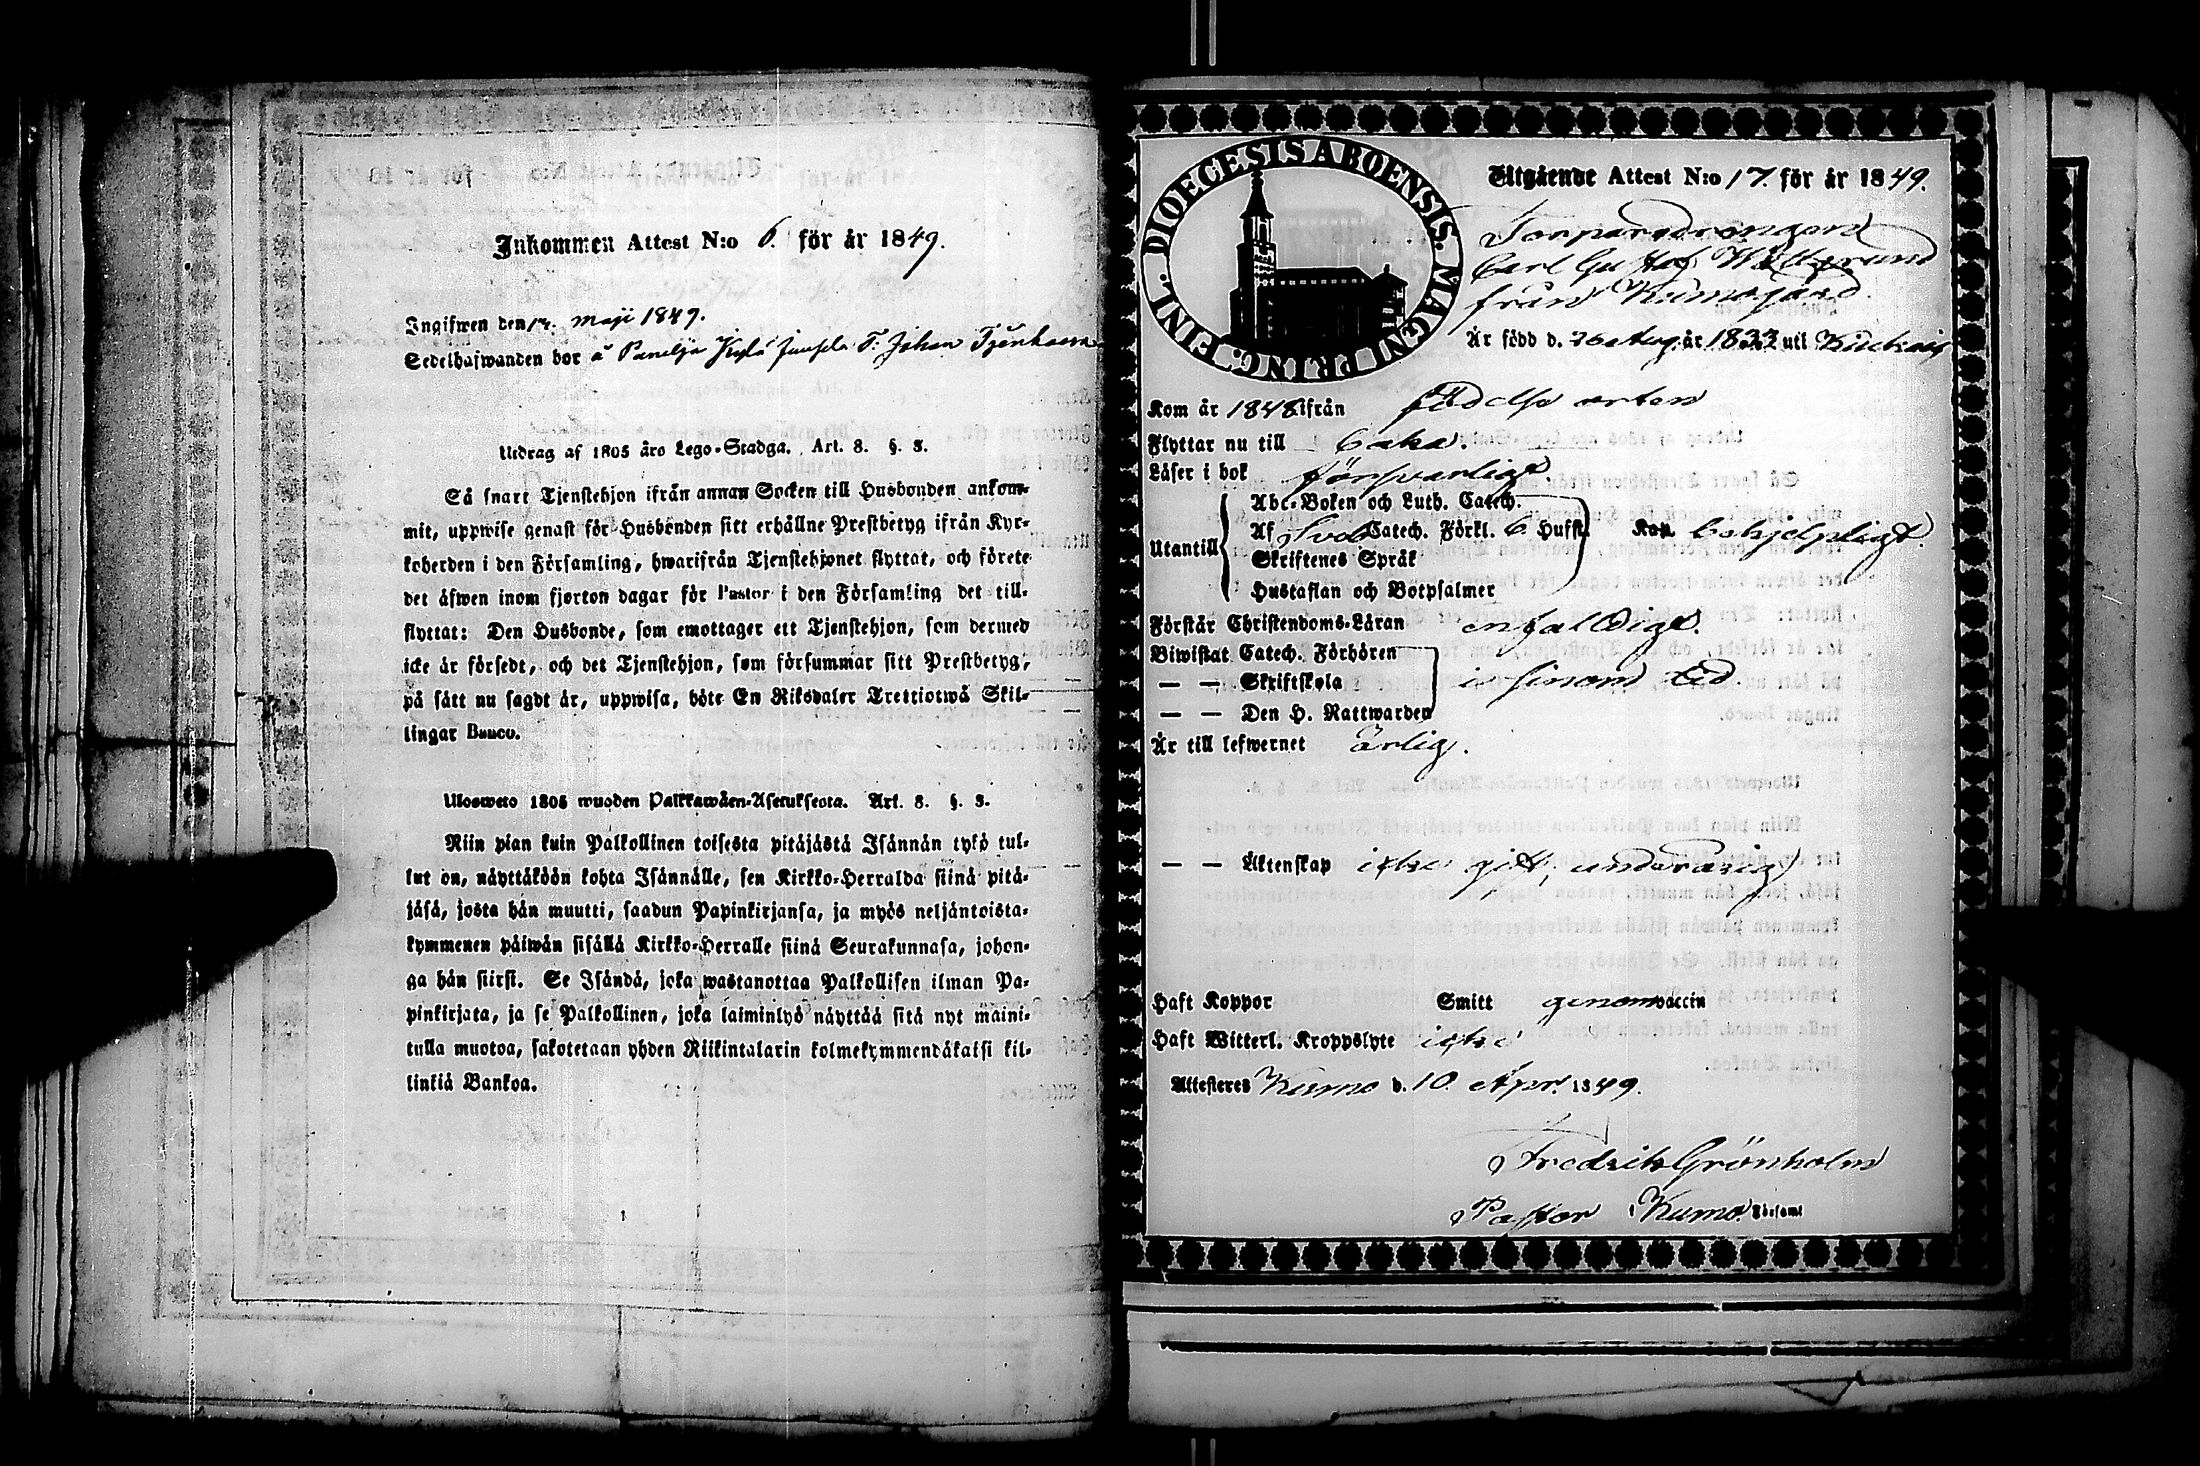 Inkommen Attest N:o 6. för år 1849.
Ingifwen den 17. maji 1849.
Sedelhafwanden bor å Panelja Kylä Juusela T. Johan
Utdrag af 1805 års Lego-Stadga. Art. 8. §. 3.
Så snart Tjenstehjon ifrån annan Socken till Husbonden ankom-
mit, uppwise genast för Husbonden sitt erhållne Prestbetyg ifrån Kyr-
koherden i den Församling, hwarifrån Tjenstehjonet flyttat, och förete
det äfwen inom fjorton dagar för Pastor i den Församling det till-
flyttat: Den Husbonde, som emottager ett Tjenstehjon, som dermed
icke är försedt, och det Tjenstehjon, som försummar sitt Prestbetyg,
på sätt nu sagdt är, uppwisa, böte En Riksdaler Trettiotwå Skil-
lingar Banco.
Ulosweto 1805 wuoden Palkkawäen-Asetuksesta. Art. 8. §. 3.
Niin pian kuin Palkollinen toisesta pitäjästä Isännän tykö tul-
lut on, näyttäköön kohta Isännälle, sen Kirkko-Herralda siinä pitä-
jäsä, josta hän muutti, saadun Papinkirjansa, ja myös neljäntoista-
kymmenen päiwän sisällä Kirkko-Herralle siinä Seurakunnasa, johon-
ga hän siirsi. Se Isändä, joka wastanottaa Palkollisen ilman Pa-
pinkirjata, ja se Palkollinen, joka laiminlyö näyttää sitä nyt maini-
tulla muotoa, sakotetaan yhden Riikintalarin kolmekymmendäkaksi kil-
linkiä Bankoa.
FINL. DIOECESIS ABOENSIS. MAGNI PRING.
Utgående Attest N:o 17. för år 1849.
Torparedrängen
Carl Gustaf
från Kumogård
Är född d. 26 Aug. år 1833 uti
Kom år 1848 ifrån födelse orten
Flyttar nu till
Läser i bok försvarligt
Abc-Boken och Luth. Catech.
Utantill Af Sveb. Catech. Förkl. 6 Hufst. Kan behjelpligt.
Skriftenes Språk
Hustaflan och Botpsalmer
Förstår Christendoms-Läran enfaldigt.
Biwistat Catech. Förhören
— — Skriftskola i sinom tid.
— — Den H. Nattwarden
Är till lefwernet ärlig.
— — Äktenskap icke gift, underårig
Haft Koppor Smitt genom vaccin
Haft Witterl. Kroppslyte icke
Attesteres Kumo d. 10. Apr. 1849.
Fredrik Grönholm
Pastor i Kumo Församl